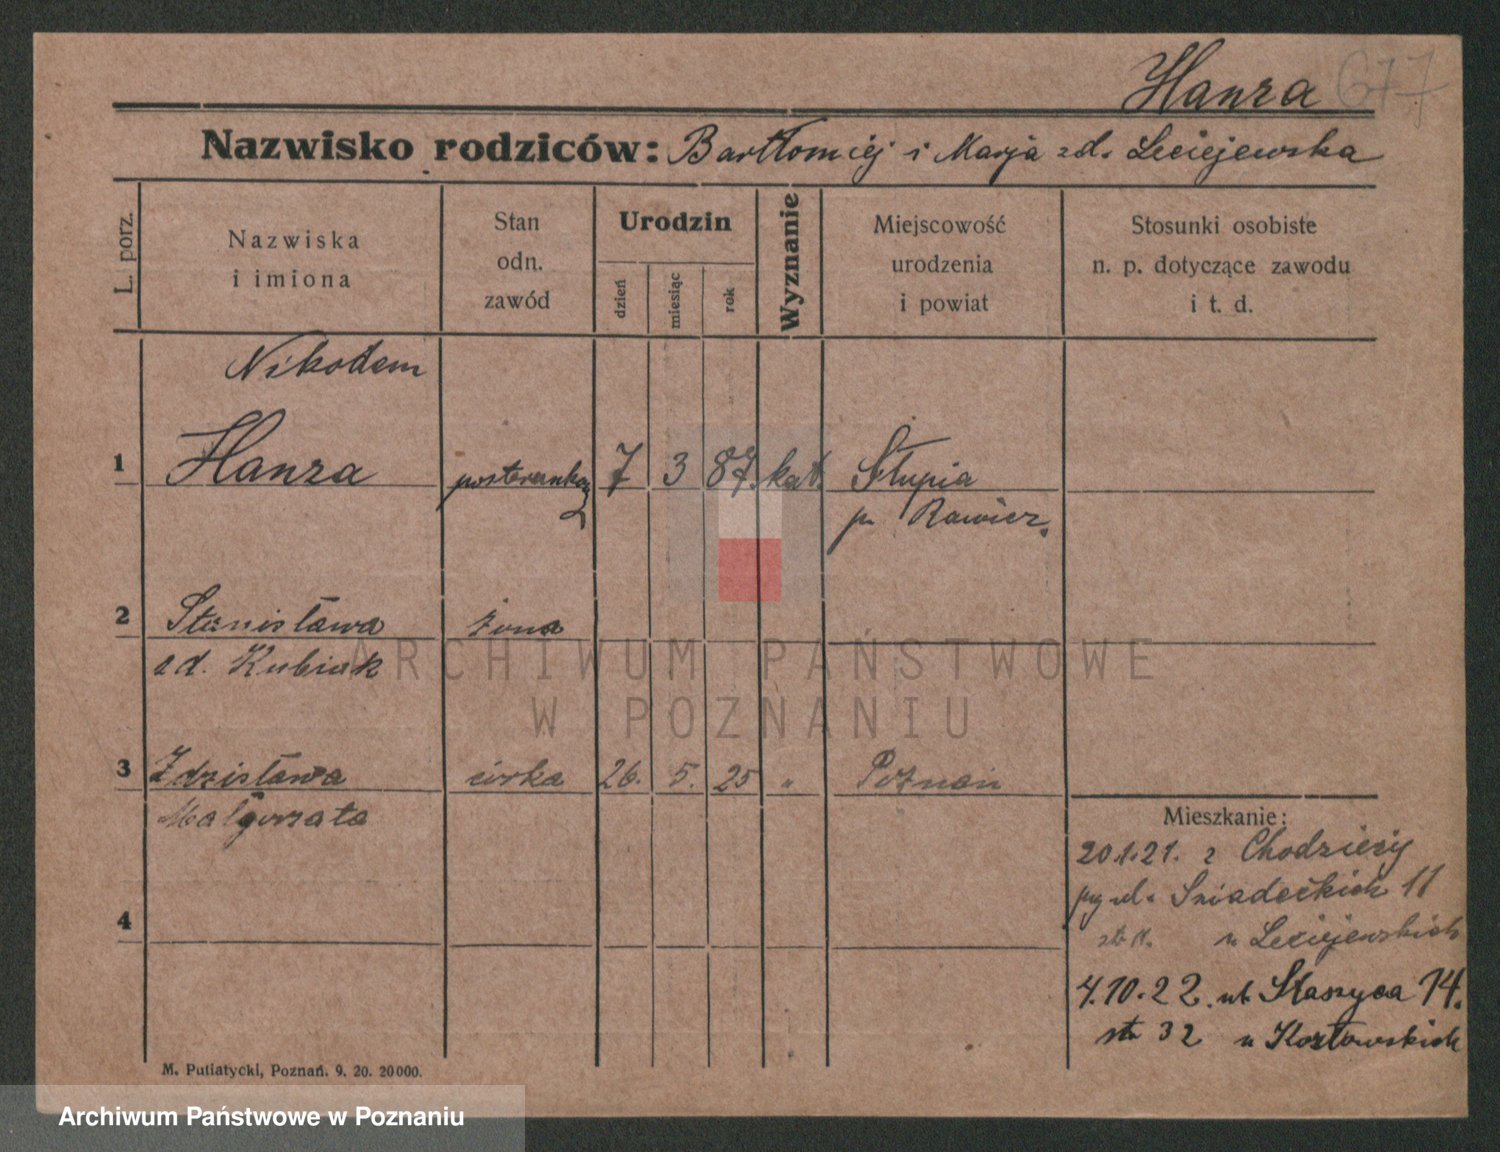 Hanza 677
Nazwisko rodziców: Bartłomiej i Marja zd. Leciejewska
L. porz.
Nazwiska
i imiona
Stan
odn.
zawód
Urodzin
dzień
miesiąc
rok
Wyznanie
Miejscowość
urodzenia
i powiat
Stosunki osobiste
n. p. dotyczące zawodu
i t. d.
Nikodem
1 Hanza posterunkowy 7 3 87. kat. Słupia
p. Rawicz.
2 Stanisława żona
zd. Kubiak
ARCHIWUM PAŃSTWOWE
W POZNANIU
3 Zdzisława córka 26. 5. 25 " Poznań
Małgorzata
Mieszkanie:
20.1.21. z Chodzieży
ul. Śniadeckich 11
u Leciejewskich
4.10.22. ul. Staszyca 14.
32 u Kozłowskich
4
M. Putiatycki, Poznań. 9. 20. 20000.
Archiwum Państwowe w Poznaniu